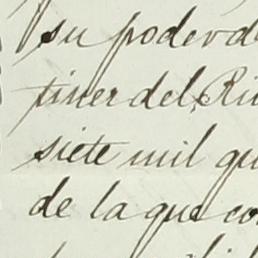 su poder d
tiner del Ri
siete mil qu
de la que co